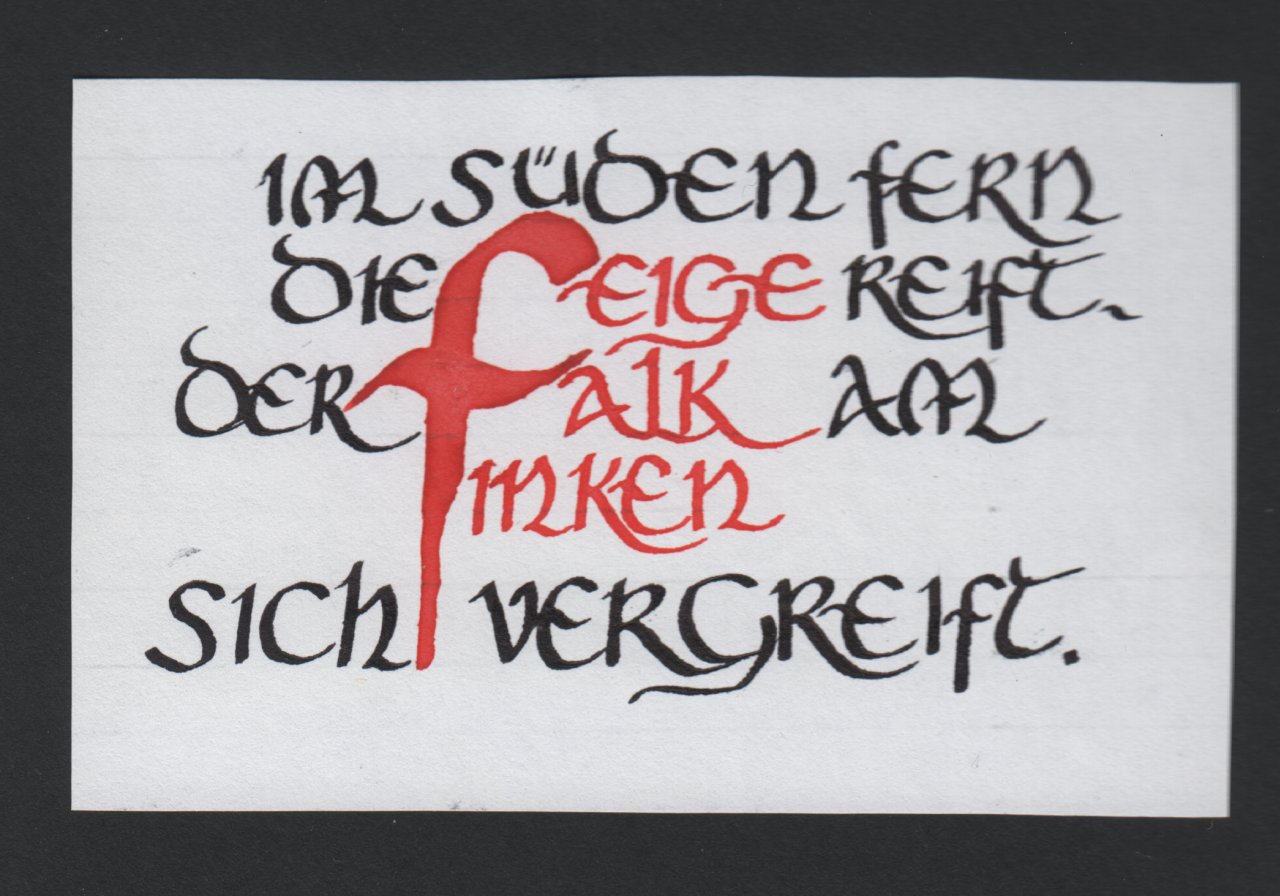 Im Süden fern
die Feige reift,
der Falk am
Finken
sich vergreift.